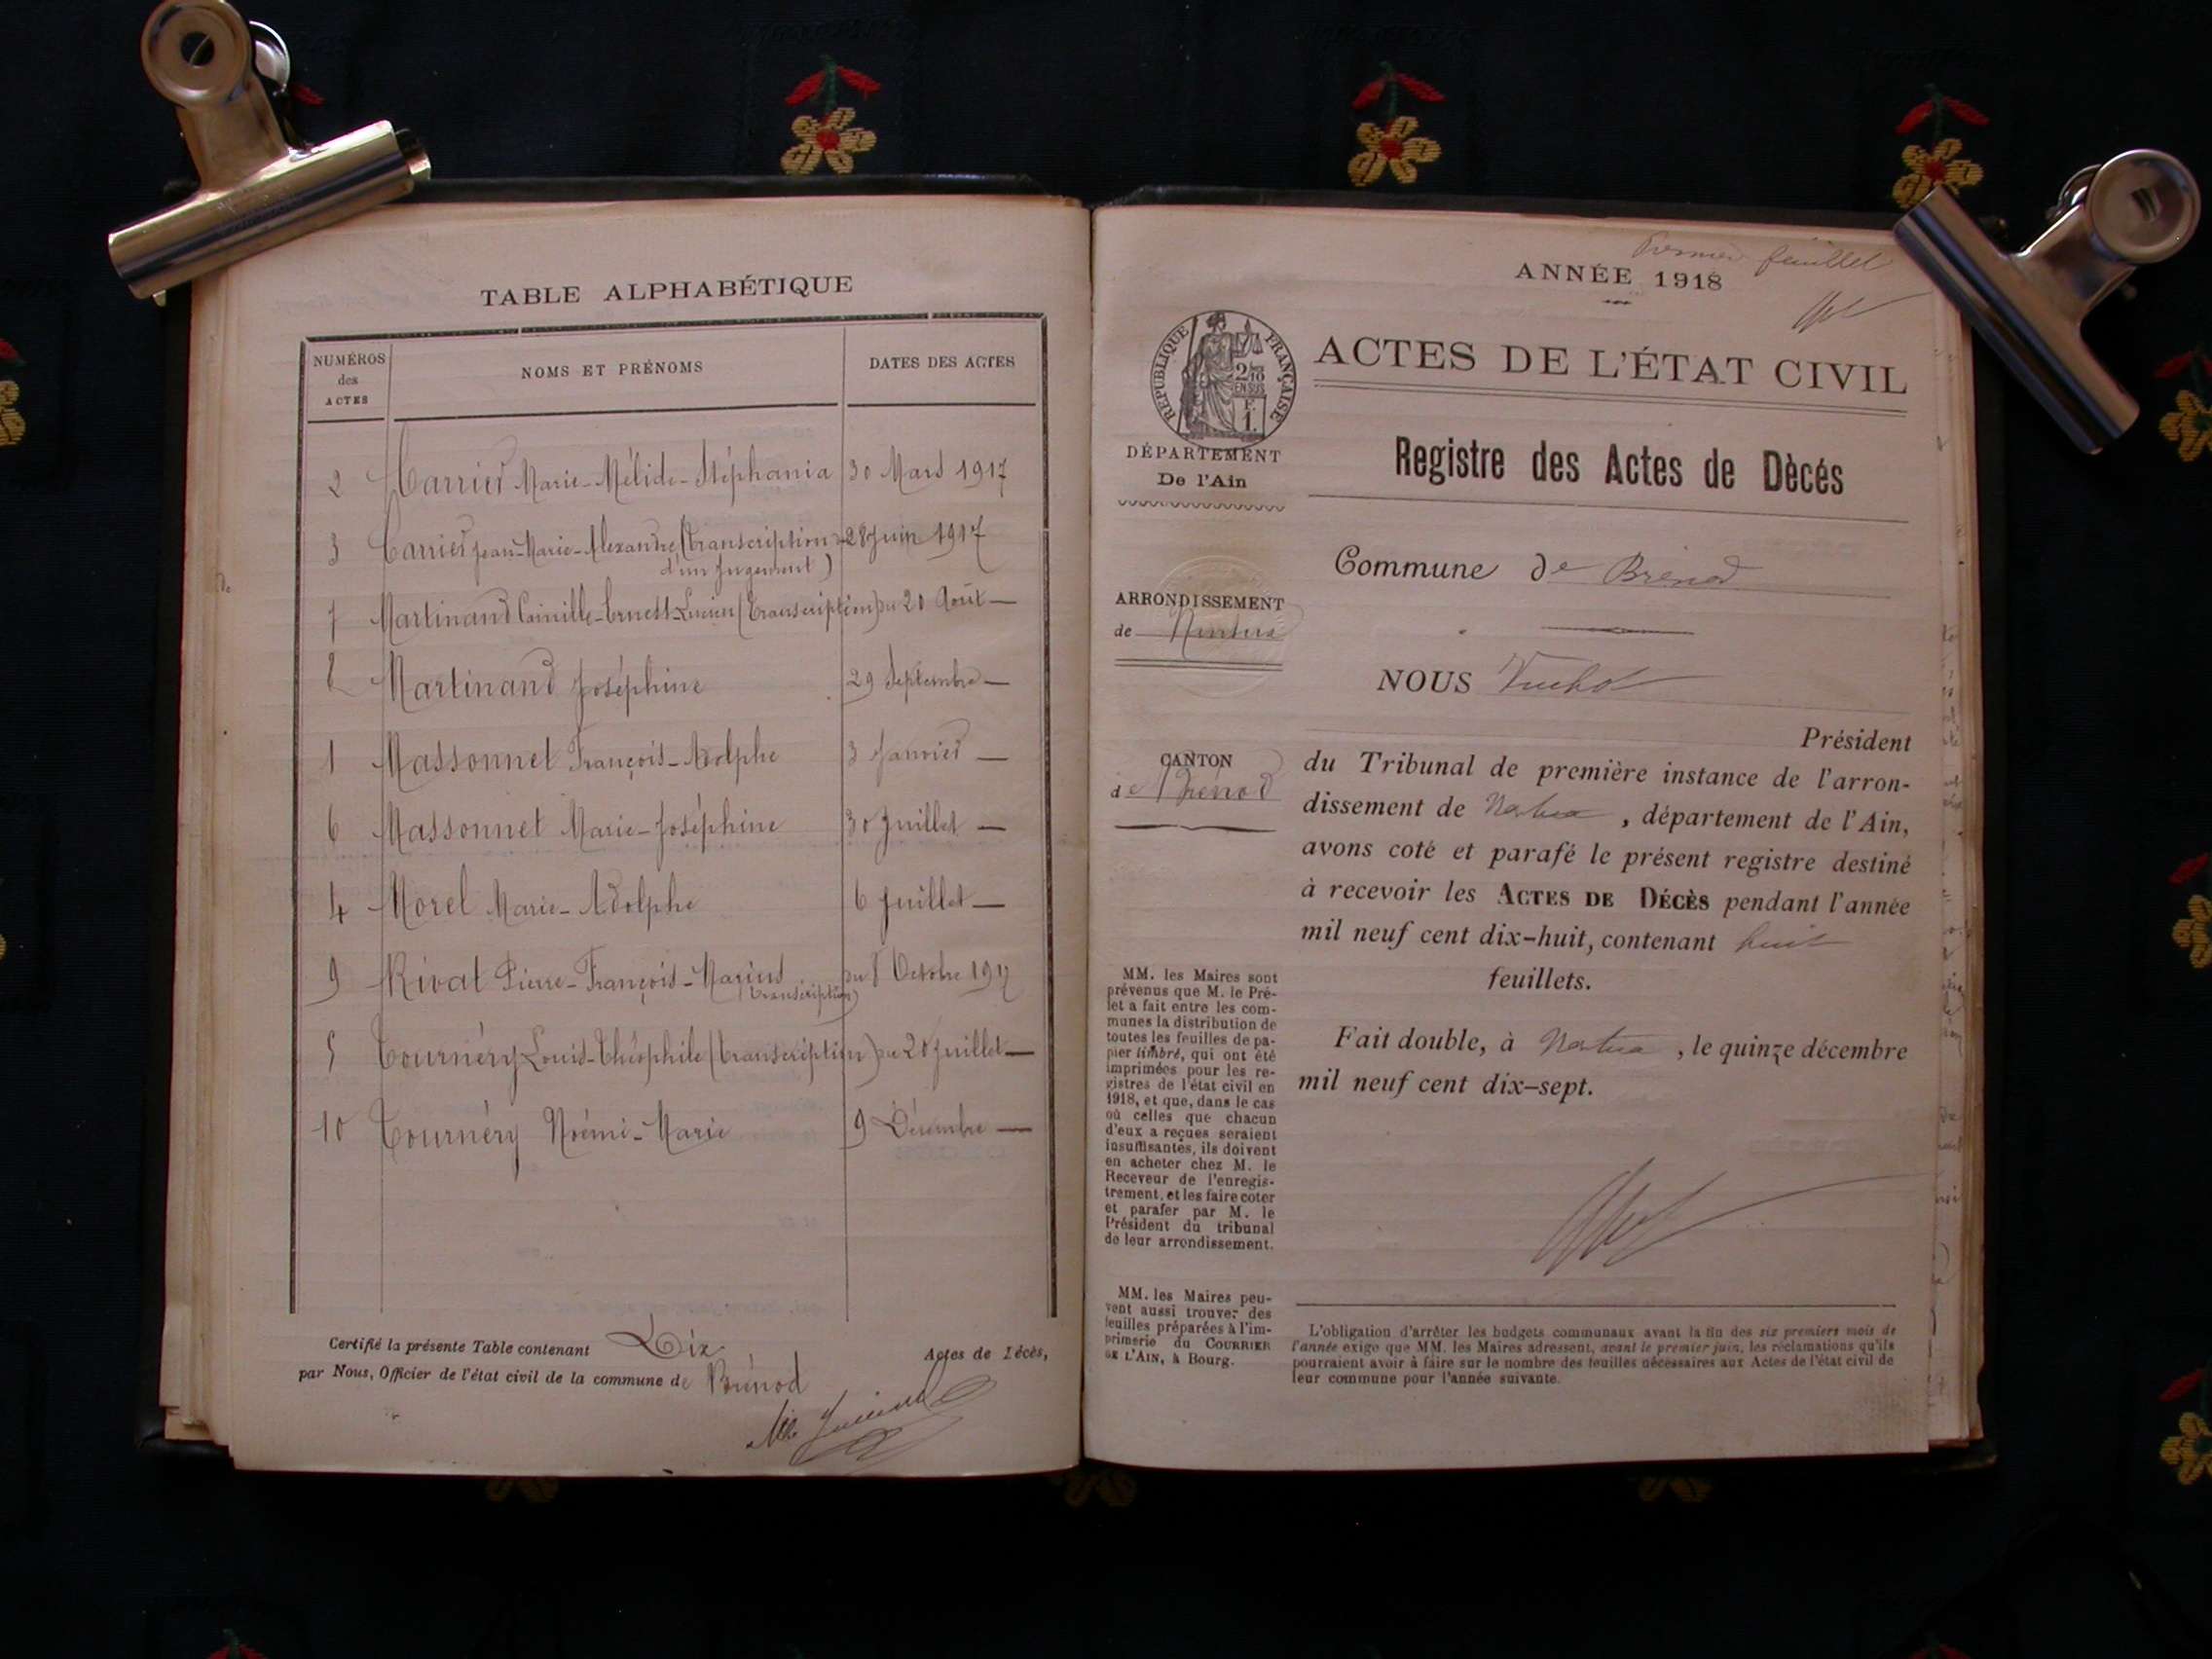 TABLE ALPHABÉTIQUE
NUMÉROS des ACTES
NOMS ET PRÉNOMS
DATES DES ACTES
2 Carrier Marie-Mélide-Stéphania 30 Mars 1917
3 Carrier Jean-Marie-Alexandre (transcription 28 Juin 1917
d'un Jugement)
7 Martinand Camille-Ernest-Lucien (transcription) du 20 Août —
8 Martinand Joséphine 29 Septembre —
1 Massonnet François-Adolphe 3 Janvier —
6 Massonnet Marie-Joséphine 30 Juillet —
4 Morel Marie-Adolphe 6 Juillet —
9 Rivat Pierre-François-Marius du 8 Octobre 1917
(transcription)
5 Tournéry Louis-Théophile (transcription) du 20 Juillet —
10 Tournéry Noémi-Marie 9 Décembre —
Certifié la présente Table contenant Dix Actes de Décès,
par Nous, Officier de l'état civil de la commune de Brénod
Premier feuillet
ANNÉE 1918
RÉPUBLIQUE FRANÇAISE
2/10
EN SUS
F.
1.
ACTES DE L'ÉTAT CIVIL
DÉPARTEMENT
De l'Ain
Registre des Actes de Dècés
Commune de Brénod
ARRONDISSEMENT
de Nantua
NOUS
Président
CANTON
de Brénod
du Tribunal de première instance de l'arron-
dissement de Nantua, département de l'Ain,
avons coté et parafé le présent registre destiné
à recevoir les ACTES DE DÉCÈS pendant l'année
mil neuf cent dix-huit, contenant huit
feuillets.
Fait double, à Nantua, le quinze décembre
mil neuf cent dix-sept.
MM. les Maires sont
prévenus que M. le Pré-
fet a fait entre les com-
munes la distribution de
toutes les feuilles de pa-
pier timbré, qui ont été
imprimées pour les re-
gistres de l'état civil en
1918, et que, dans le cas
où celles que chacun
d'eux a reçues seraient
insuffisantes, ils doivent
en acheter chez M. le
Receveur de l'enregis-
trement, et les faire coter
et parafer par M. le
Président du tribunal
de leur arrondissement.
MM. les Maires peu-
vent aussi trouver des
feuilles préparées à l'im-
primerie du COURRIER
DE L'AIN, à Bourg.
L'obligation d'arrêter les budgets communaux avant la fin des six premiers mois de
l'année exige que MM. les Maires adressent, avant le premier juin, les réclamations qu'ils
pourraient avoir à faire sur le nombre des feuilles nécessaires aux Actes de l'état civil de
leur commune pour l'année suivante.